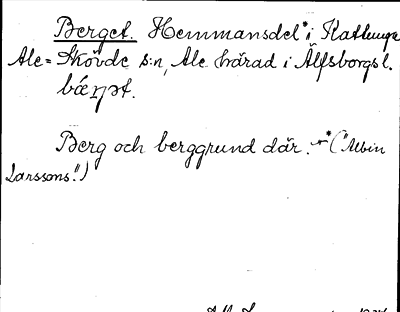 Berget. Hemmansdel* i Kattunge
Ale=Skövde s:n, Ale härad i Älfsborgs l.
bǽr̥ʒət.
Berg och berggrund där. *("Albin
Larssons".)